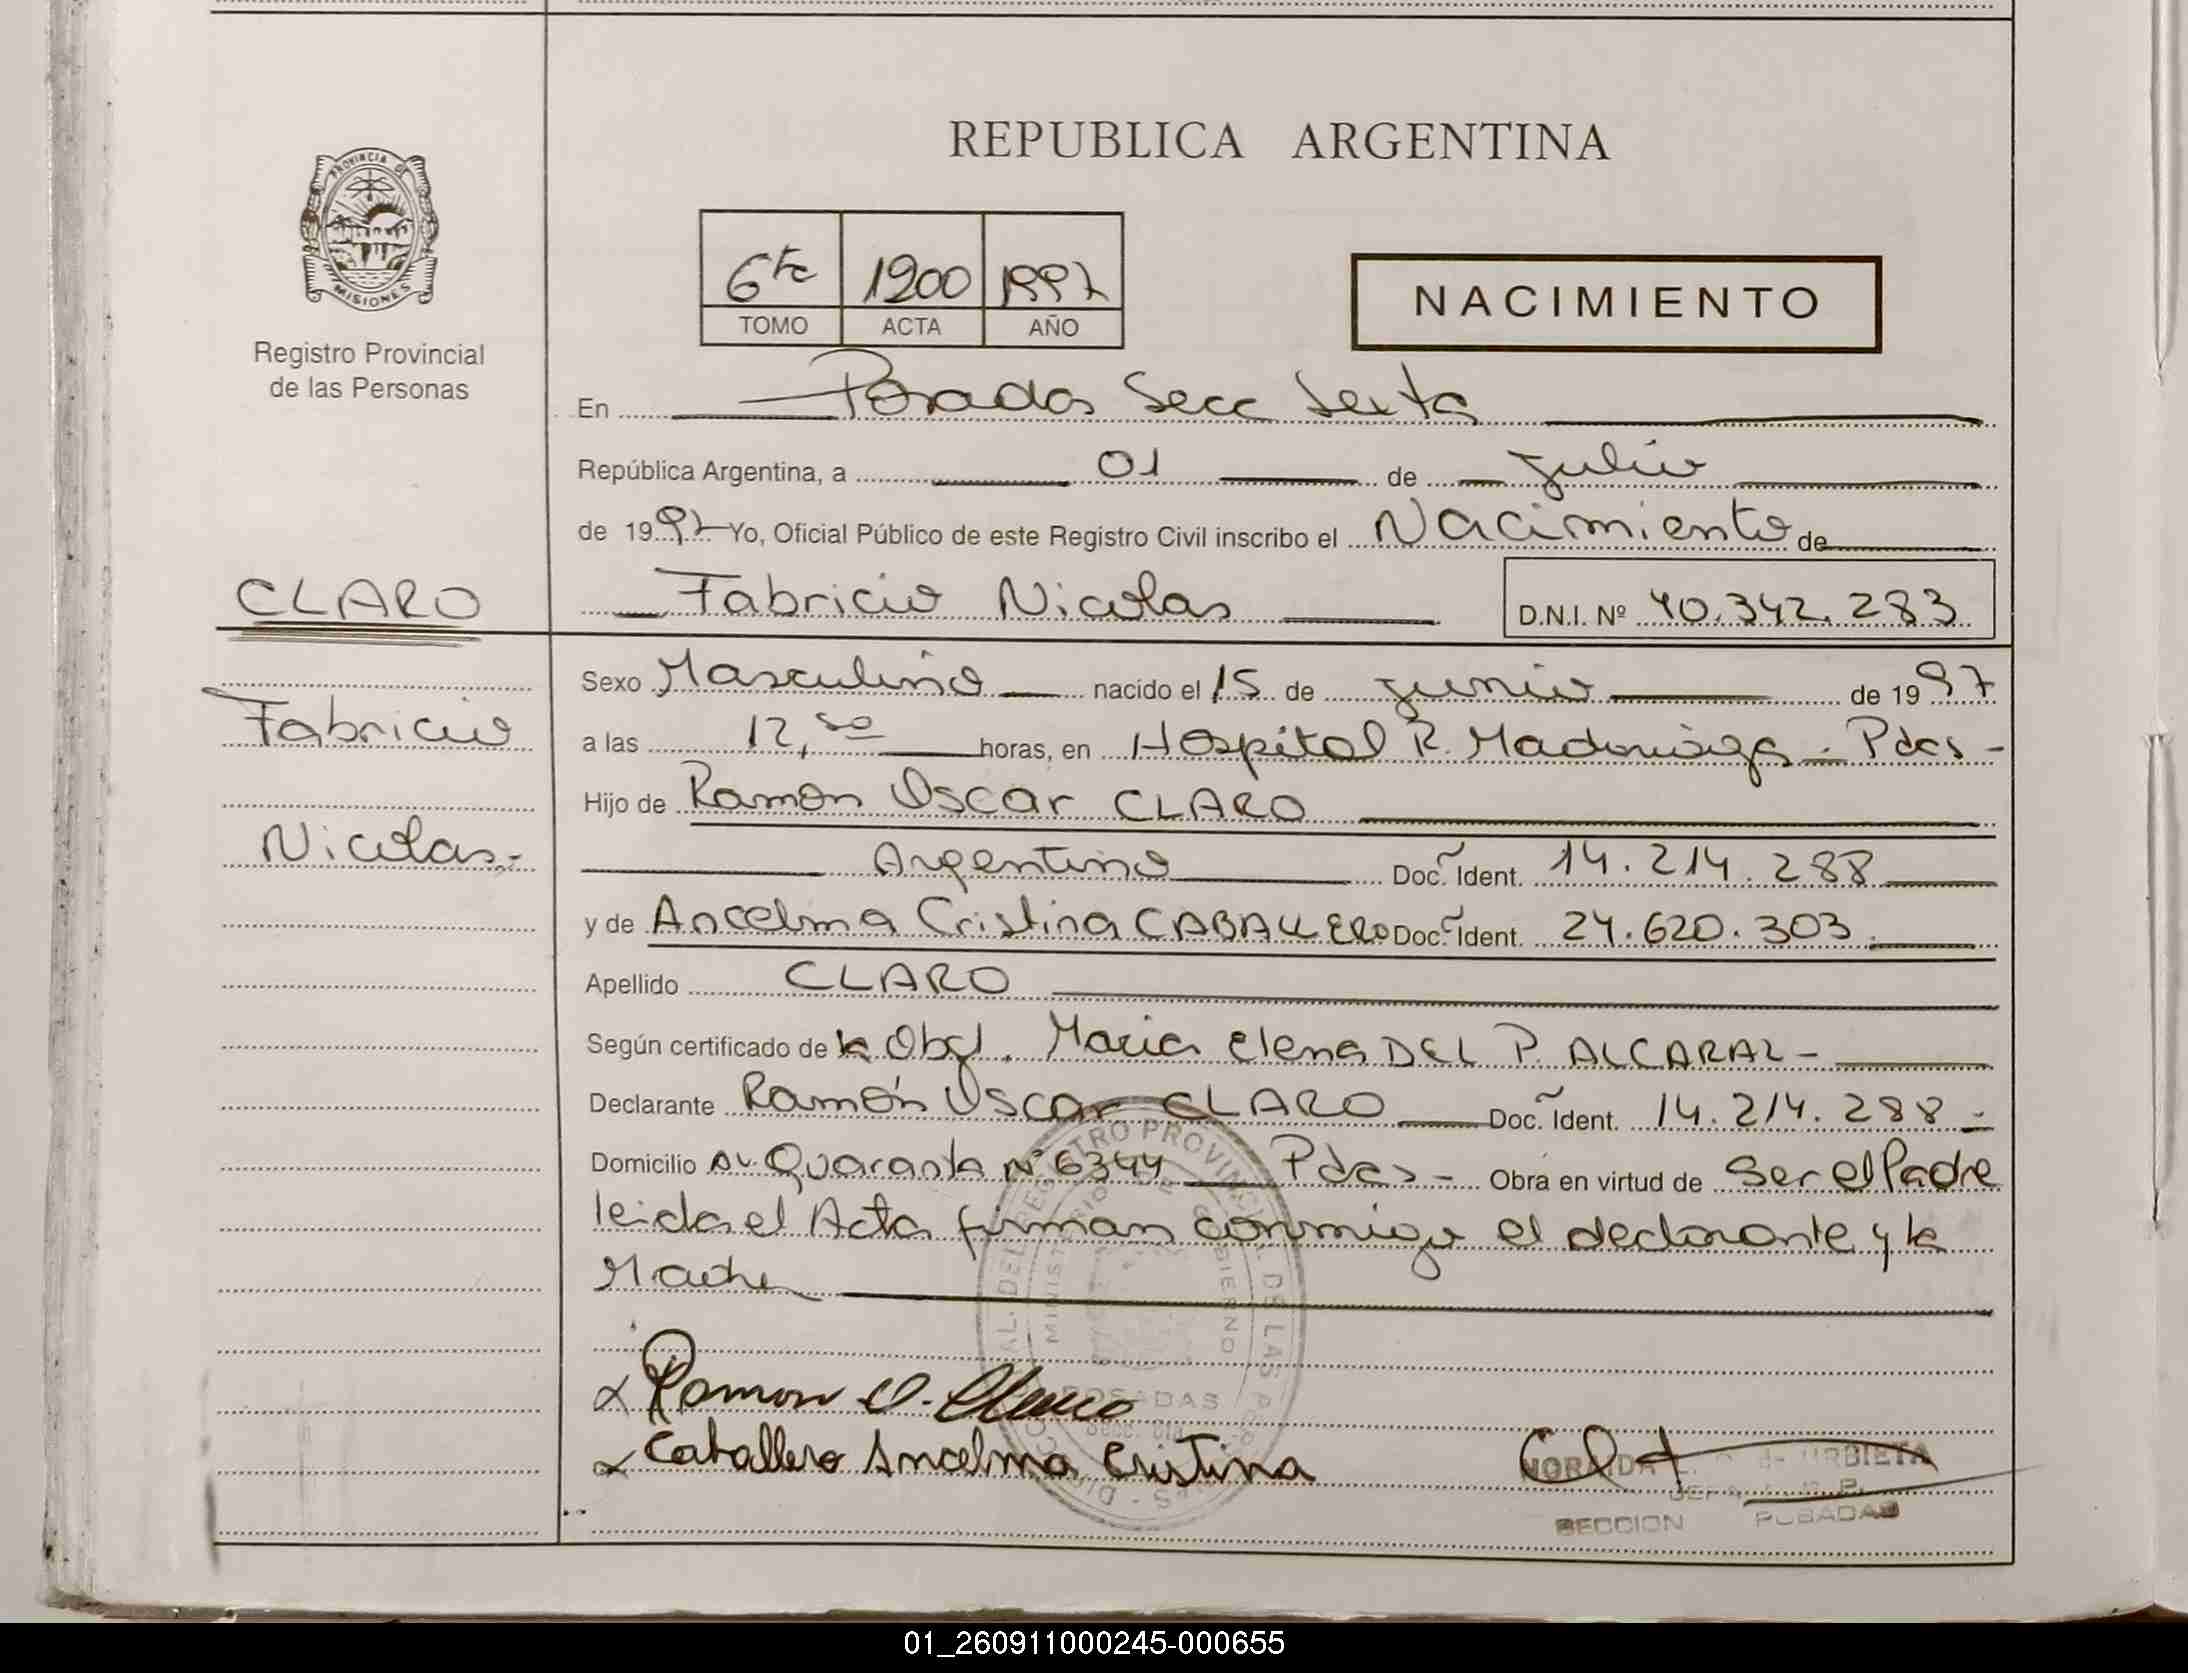 REPUBLICA ARGENTINA
PROVINCIA DE
MISIONES
Registro Provincial
de las Personas
6ta 1200 1997
TOMO ACTA AÑO
NACIMIENTO
En Posadas Secc Sexta
República Argentina, a 01 de julio
de 1997 Yo, Oficial Público de este Registro Civil inscribo el Nacimiento de
CLARO
Fabricio Nicolas D.N.I. Nº 40.342.283
Sexo Masculino nacido el 15 de junio de 1997
Fabricio
a las 12,50 horas, en Hospital R. Madariaga - Pdas -
Hijo de Ramon Oscar CLARO
Nicolas-
Argentino Doc. Ident. 14.214.288
y de Ancelma Cristina CABALLERO Doc. Ident. 24.620.303
Apellido CLARO
Según certificado de la Obst. Maria Elena DEL P. ALCARAZ -
Declarante Ramón Oscar CLARO Doc. Ident. 14.214.288 -
Domicilio Av. Quaranta Nº 6344 Pdas - Obra en virtud de Ser el Padre
leida el Acta firman conmigo el declarante y la
Madre
Ramon O. Claro
Caballero Ancelma Cristina
URBIETA
SECCION POSADAS
01_260911000245-000655